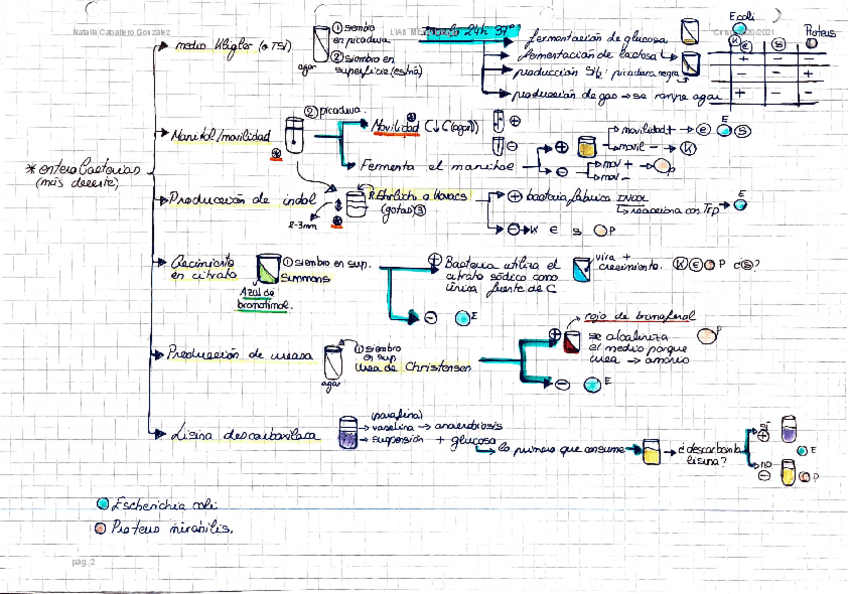 Natalia Caballero González
E.coli
Proteus
medio Kligler (o TSI)
① siembro
en picadura
② siembro en
superficie (estría)
agar
24h 37º
fermentación de glucosa
fermentación de lactosa
producción SH₂: picadura negra
producción de gas → se rompe agar
K e S
+ - -
- - +
+ - -
Manitol/movilidad
② picadura.
Movilidad
Fermenta el manitol
movilidad + → e E S
movil - → K
mov + → P
mov -
* enterobacterias
(más decente)
Producción de indol
2-3mm
R. Ehrlich o Kovacs
(gotas) ③
⊕ bacteria fabrica INDOL
reacciona con Trp → E
⊖ → K e s P
Crecimiento
en citrato
① siembro en sup.
Simmons
Azul de
bromotimol.
⊕ Bacteria utiliza el
citrato sódico como
única fuente de C
vira +
crecimiento.
K E P c S?
⊖ E
Producción de ureasa
① siembro
en sup
Urea de Christensen
agar
rojo de bromofenol
⊕ se alcaliniza
el medio porque
urea → amonio
P
⊖ E
Lisina descarboxilasa
(parafina)
vaselina → anaerobiosis
suspensión + glucosa
lo primero que consume
¿descarboxila
lisina?
sí ⊕ E
no ⊖ P
Escherichia coli
Proteus mirabilis.
pag. 2